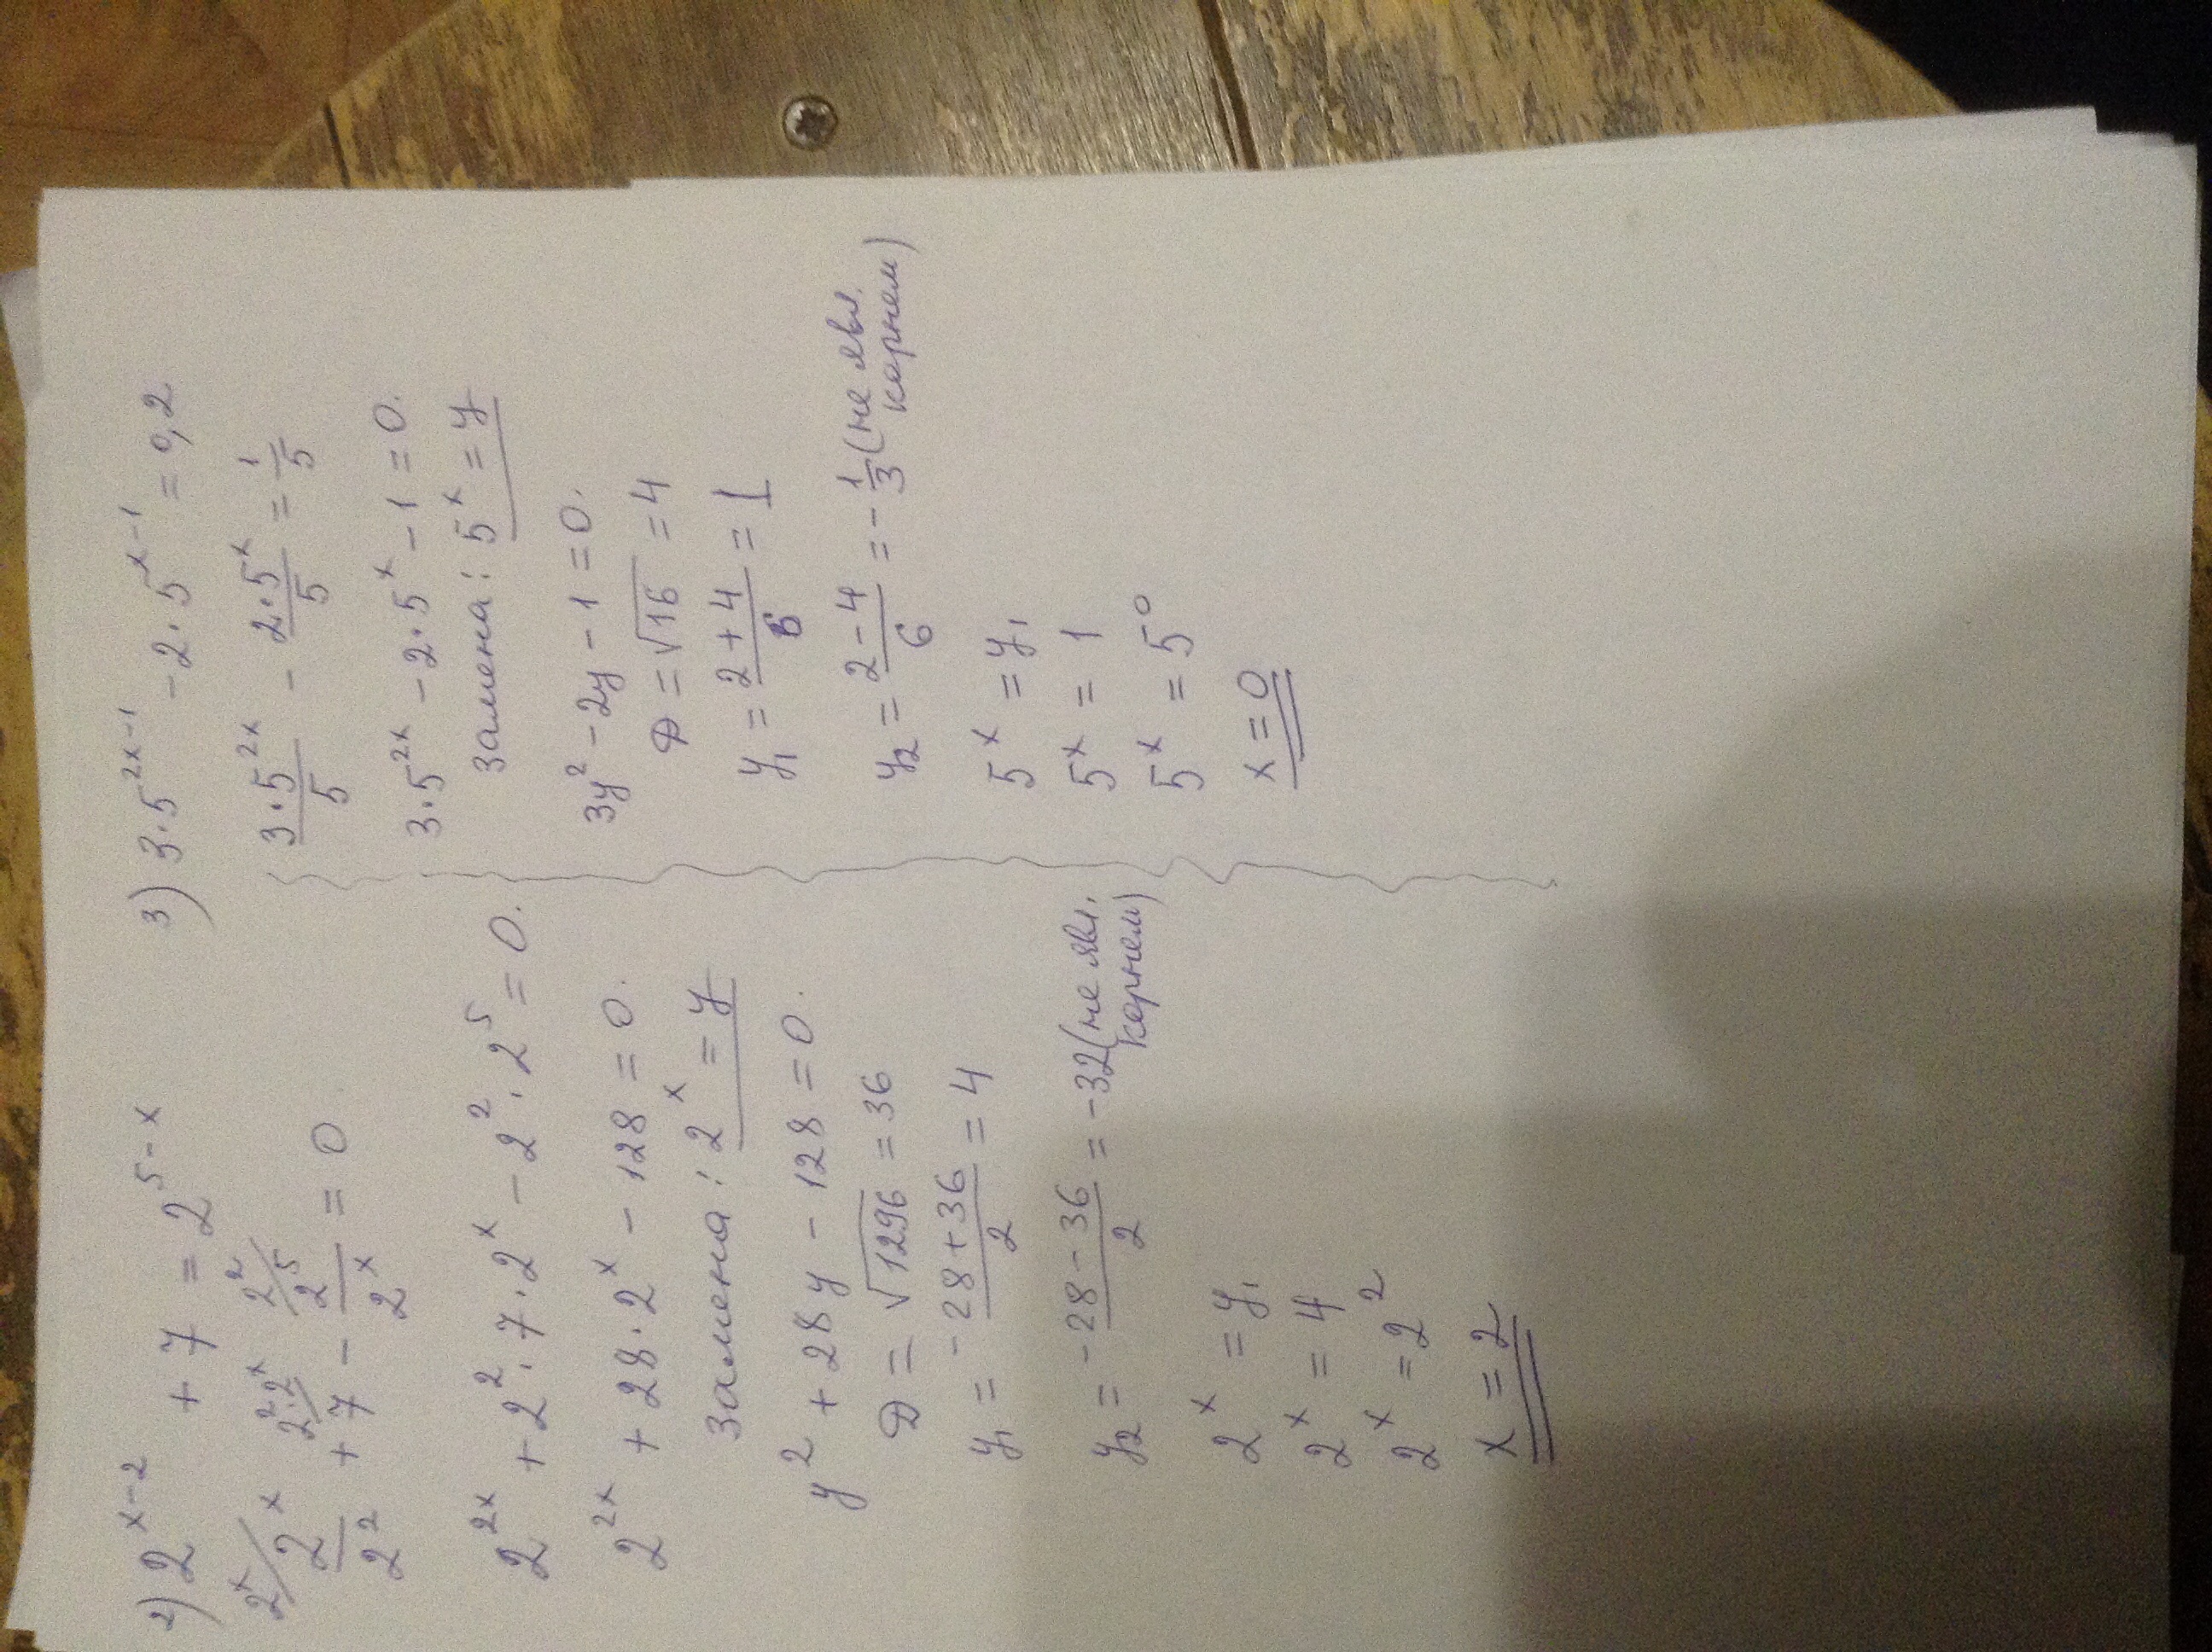 2) 2^{x-2} + 7 = 2^{5-x}
2^x/ 2^x/2^2 + 2^2·2^x/ 7 - 2^2/ 2^5/2^x = 0
2^{2x} + 2^2 · 7 · 2^x - 2^2 · 2^5 = 0.
2^{2x} + 28 · 2^x - 128 = 0.
Замена: 2^x = y
y^2 + 28y - 128 = 0.
D = √1296 = 36
y_1 = (-28+36)/2 = 4
y_2 = (-28-36)/2 = -32 (не явл.
корнем)
2^x = y_1
2^x = 4
2^x = 2^2
x = 2
3) 3·5^{2x-1} - 2·5^{x-1} = 0,2
3·5^{2x}/5 - 2·5^x/5 = 1/5
3·5^{2x} - 2·5^x - 1 = 0.
Замена: 5^x = y
3y^2 - 2y - 1 = 0.
D = √16 = 4
y_1 = (2+4)/6 = 1
y_2 = (2-4)/6 = -1/3 (не явл.
корнем)
5^x = y_1
5^x = 1
5^x = 5^0
x = 0